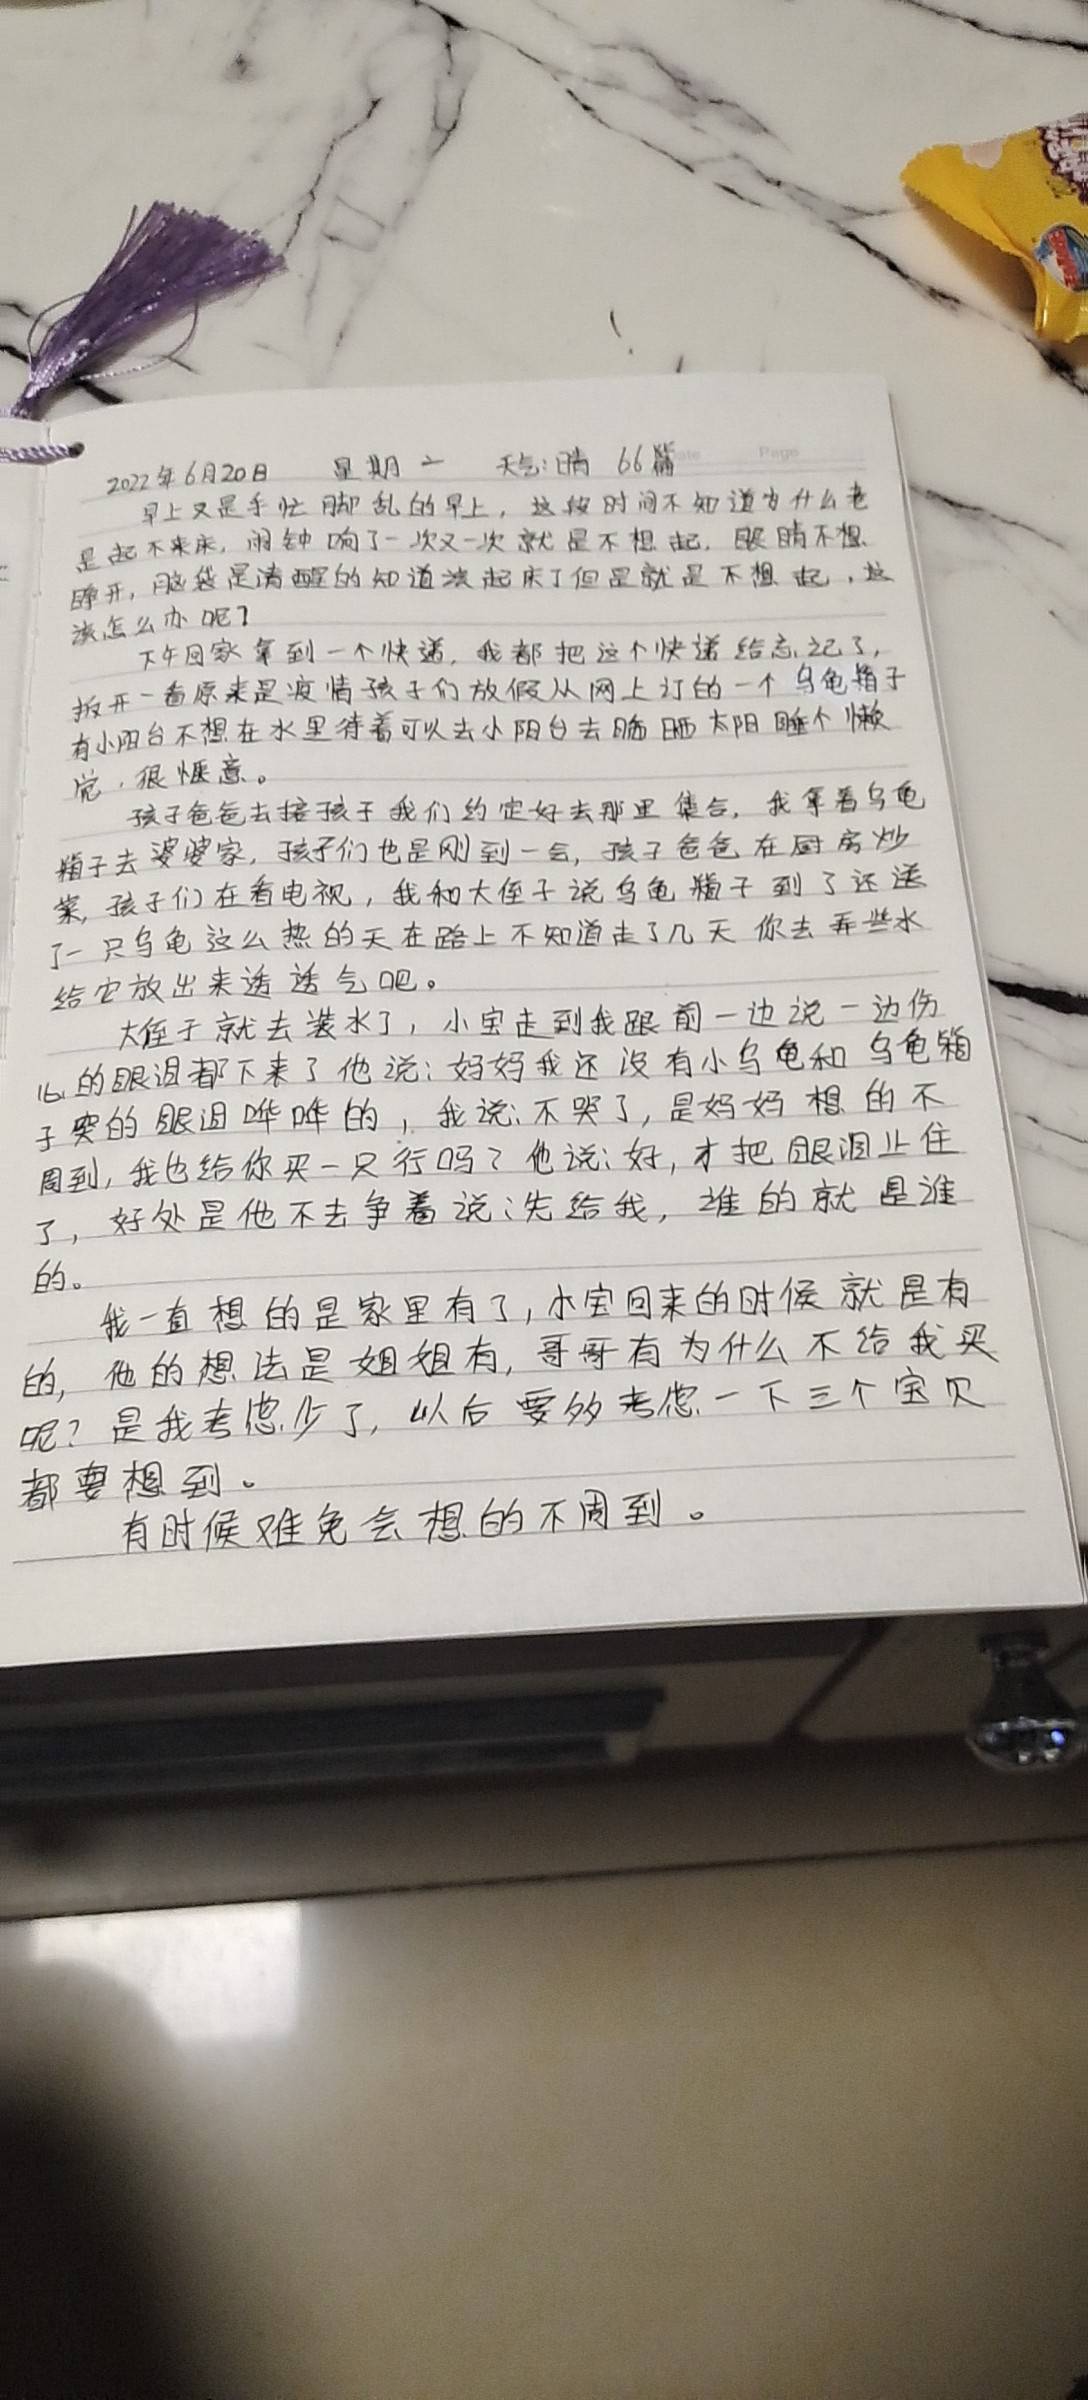 2022年6月20日 星期二 天气:晴 66篇
Page
早上又是手忙脚乱的早上，这段时间不知道为什么老
是起不来床，闹钟响了一次又一次就是不想起，眼睛不想
睁开，脑袋是清醒的知道该起床了但是就是不想起，这
该怎么办呢？
下午回家拿到一个快递，我都把这个快递给忘记了，
拆开一看原来是疫情孩子们放假从网上订的一个乌龟箱子
有小阳台不想在水里待着可以去小阳台去晒晒太阳睡个懒
觉，很惬意。
孩子爸爸去接孩子我们约定好去那里集合，我拿着乌龟
箱子去婆婆家，孩子们也是刚到一会，孩子爸爸在厨房炒
菜，孩子们在看电视，我和大侄子说乌龟箱子到了还送
了一只乌龟这么热的天在路上不知道走了几天你去弄些水
给它放出来透透气吧。
大侄子就去装水了，小宝走到我跟前一边说一边伤
心的眼泪都下来了他说：妈妈我还没有小乌龟和乌龟箱
子哭的眼泪哗哗的，我说：不哭了，是妈妈想的不
周到，我也给你买一只行吗？他说：好，才把眼泪止住
了，好处是他不去争着说：先给我，谁的就是谁
的。
我一直想的是家里有了，小宝回来的时候就是有
的，他的想法是姐姐有，哥哥有为什么不给我买
呢？是我考虑少了，以后要多考虑一下三个宝贝
都要想到。
有时候难免会想的不周到。